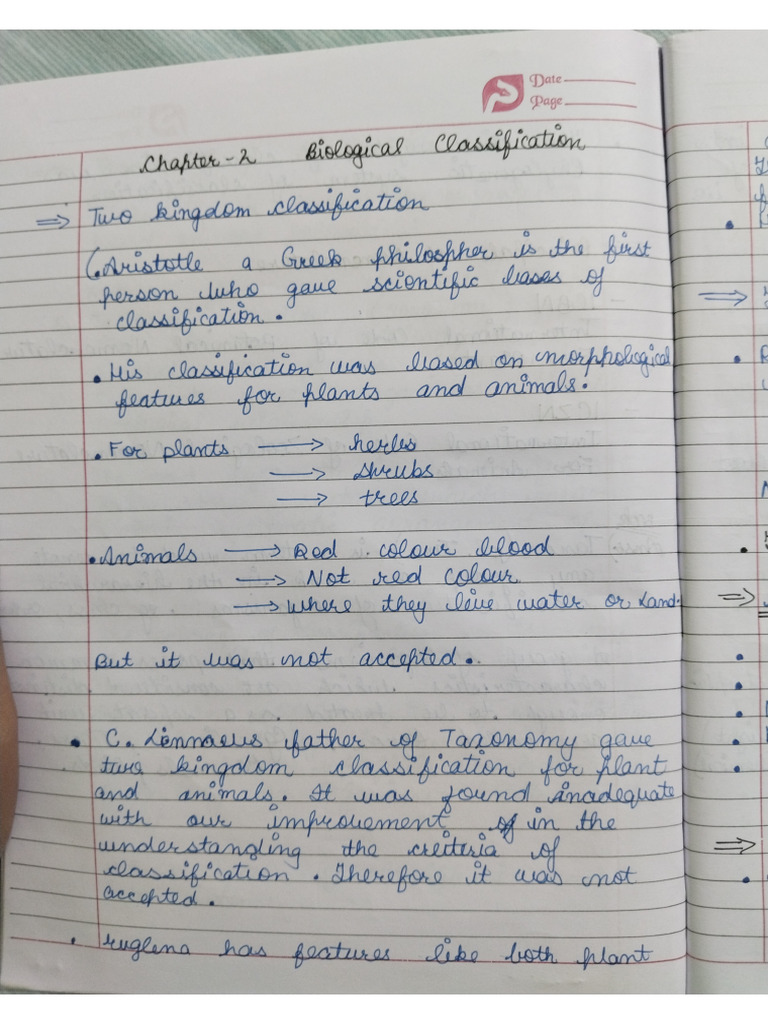 Date
Page
Chapter-2 Biological Classification
⇒ Two kingdom classification
(Aristotle a Greek philospher is the first
person who gave scientific bases of
classification.
• His classification was based on morphological
features for plants and animals.
• For plants → herbs
→ shrubs
→ trees
• Animals → Red colour blood
→ Not red colour
→ where they live water or Land.
But it was not accepted.
• C. Linnaeus father of Taxonomy gave
two kingdom classification for plant
and animals. It was found inadequate
with our improvement in the
understanding the criteria of
classification. Therefore it was not
accepted.
• euglena has features like both plant